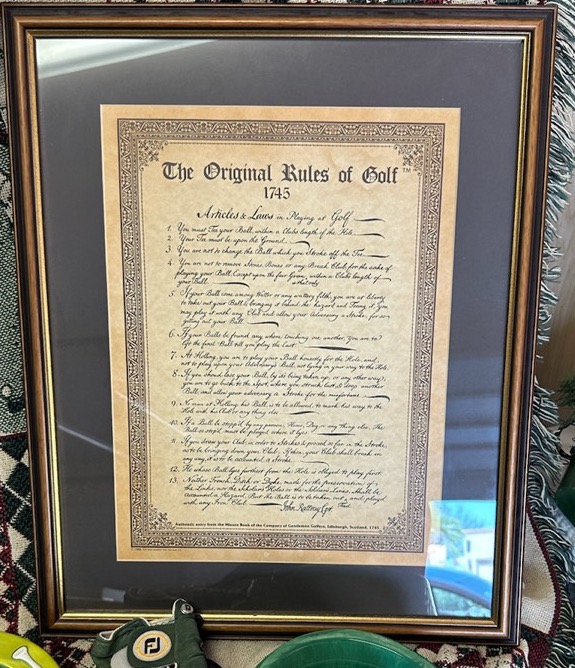 The Original Rules of Golf ™
1745
Articles & Laws in Playing at Golf
1. You must Tee your Ball, within a Clubs length of the Hole.
2. Your Tee must be upon the Ground.
3. You are not to change the Ball which you Stroke off the Tee.
4. You are not to remove Stones, Bones or any Break Club, for the sake of
playing your Ball, Except upon the fair Green, within a Clubs length of
your Ball.
5. If your Ball come among Water or any watery filth, you are at liberty
to take out your Ball & bringing it behind the hazard and Teeing it, You
may play it with any Club and allow your Adversary a Stroke, for so
getting out your Ball.
6. If your Balls be found any where touching one another, You are to
lift the first Ball, till you play the last.
7. At Holling, you are to play your Ball honestly for the Hole, and
not to play upon your Adversary's Ball, not lying in your way to the Hole.
8. If you should lose your Ball, by its being taken up, or any other way,
you are to go back to the Spot, where you struck last & drop another
Ball, and allow your adversary a Stroke for the misfortune.
9. No man at Holling his Ball, is to be allowed, to mark his way to the
Hole with his Club or any thing else
10. If a Ball be stopp'd by any person, Horse, Dog or any thing else, The
Ball so stop'd must be played where it lyes.
11. If you draw your Club, in order to Stroke & proceed so far in the Stroke,
as to be bringing down your Club; If then, your Club shall break in
any way, it is to be accounted a Stroke
12. He whose Ball lyes farthest from the Hole is obliged to play first.
13. Neither Trench, Ditch or Dyke, made for the preservation of
the Links, nor the Scholars Holes or the Soldiers Lines, Shall be
accounted a Hazard, But the Ball is to be taken out, and play'd
with any Iron Club.
John Rattray Cpt
Authentic entry from the Minute Book of the Company of Gentlemen Golfers, Edinburgh, Scotland, 1745
FJ